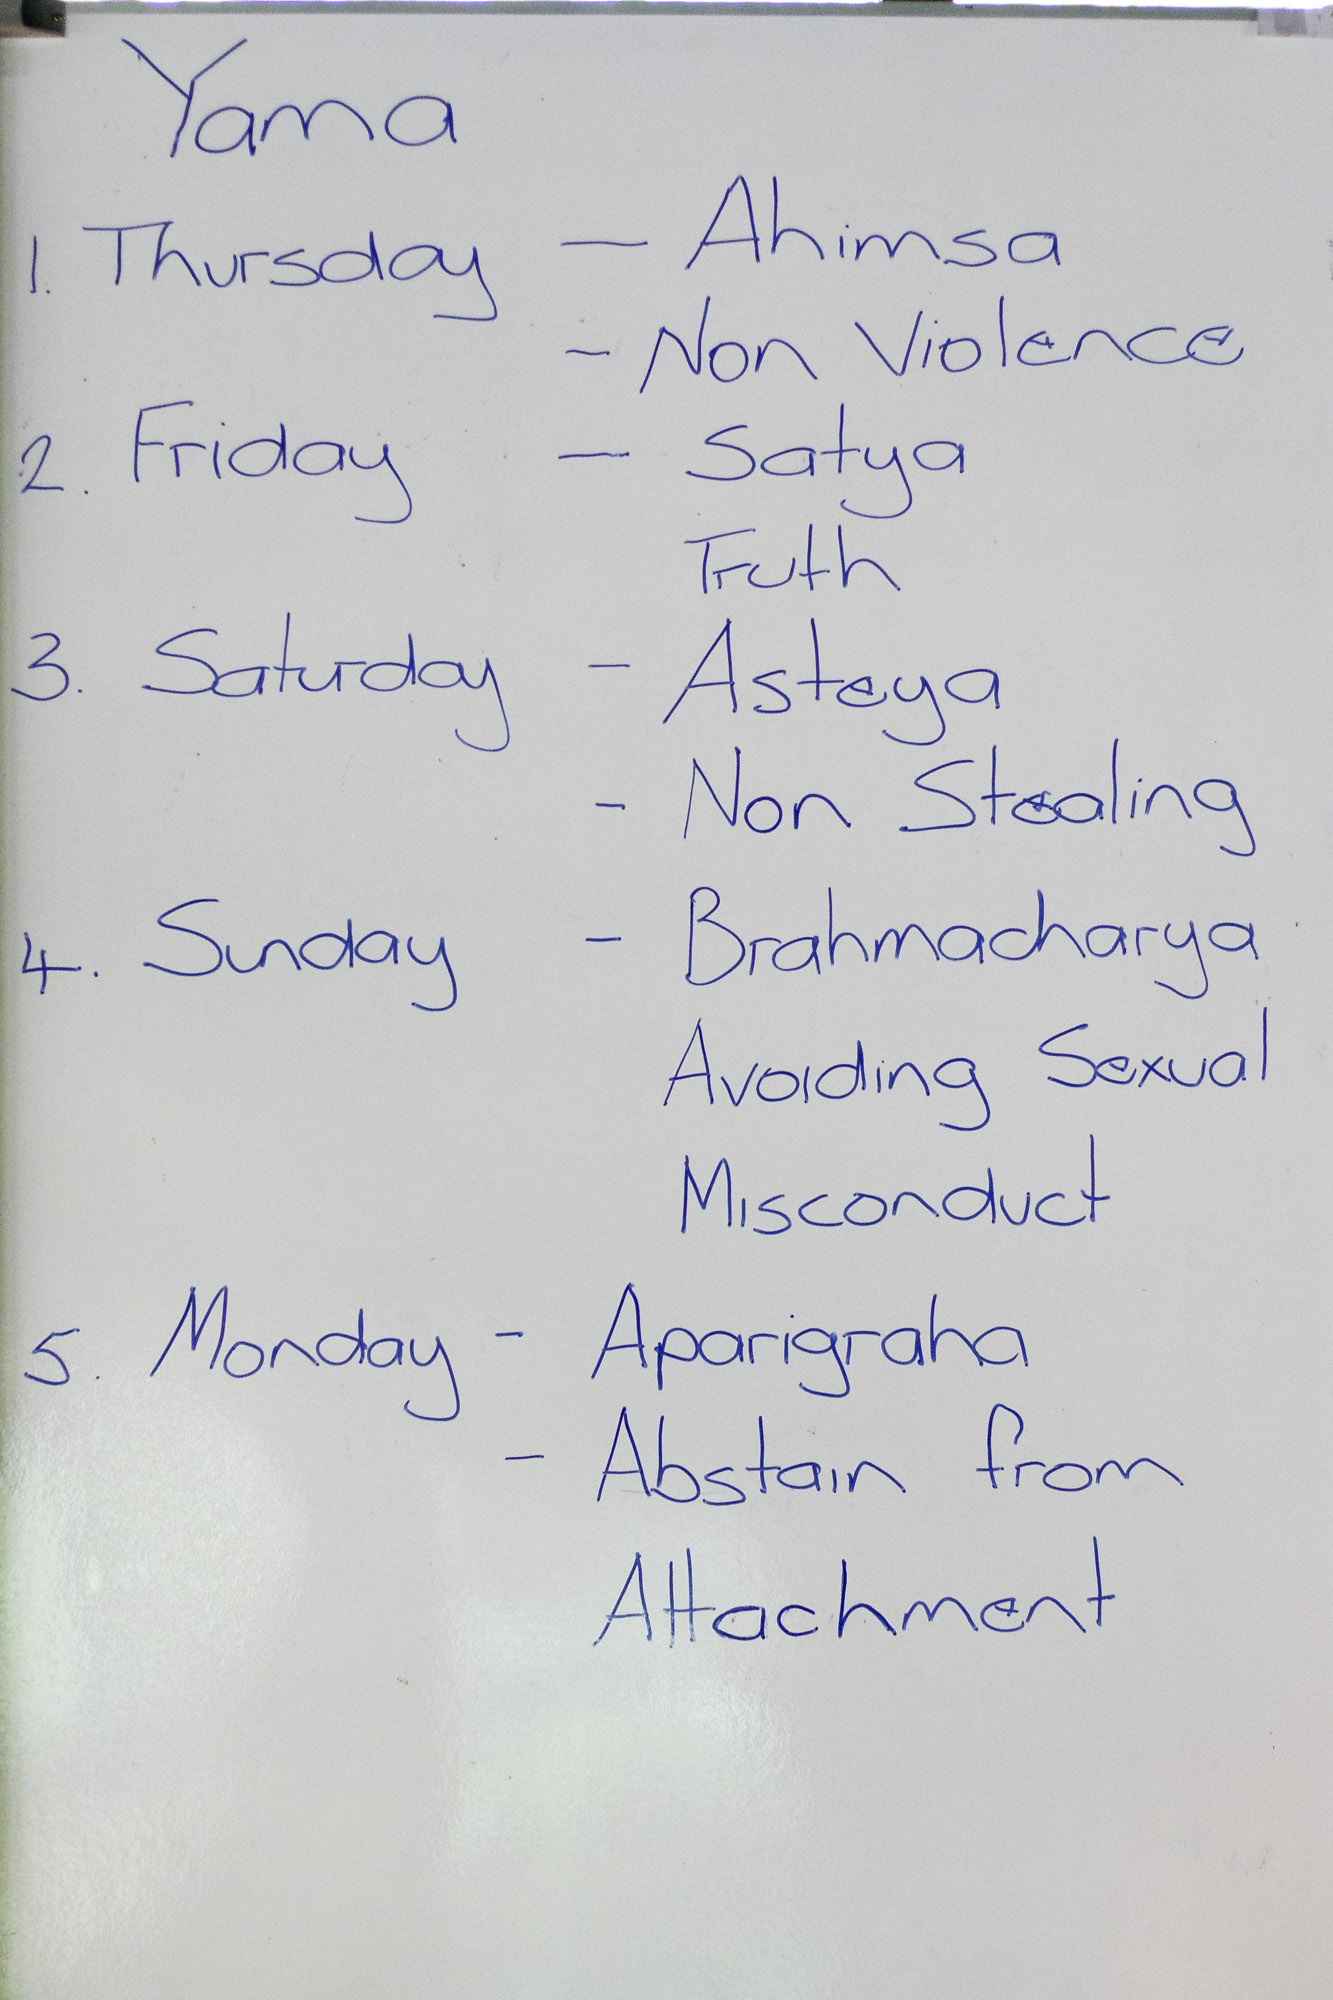 Yama
1. Thursday — Ahimsa
- Non Violence
2. Friday — Satya
Truth
3. Saturday - Asteya
- Non Stealing
4. Sunday - Brahmacharya
Avoiding Sexual
Misconduct
5. Monday - Aparigraha
- Abstain from
Attachment